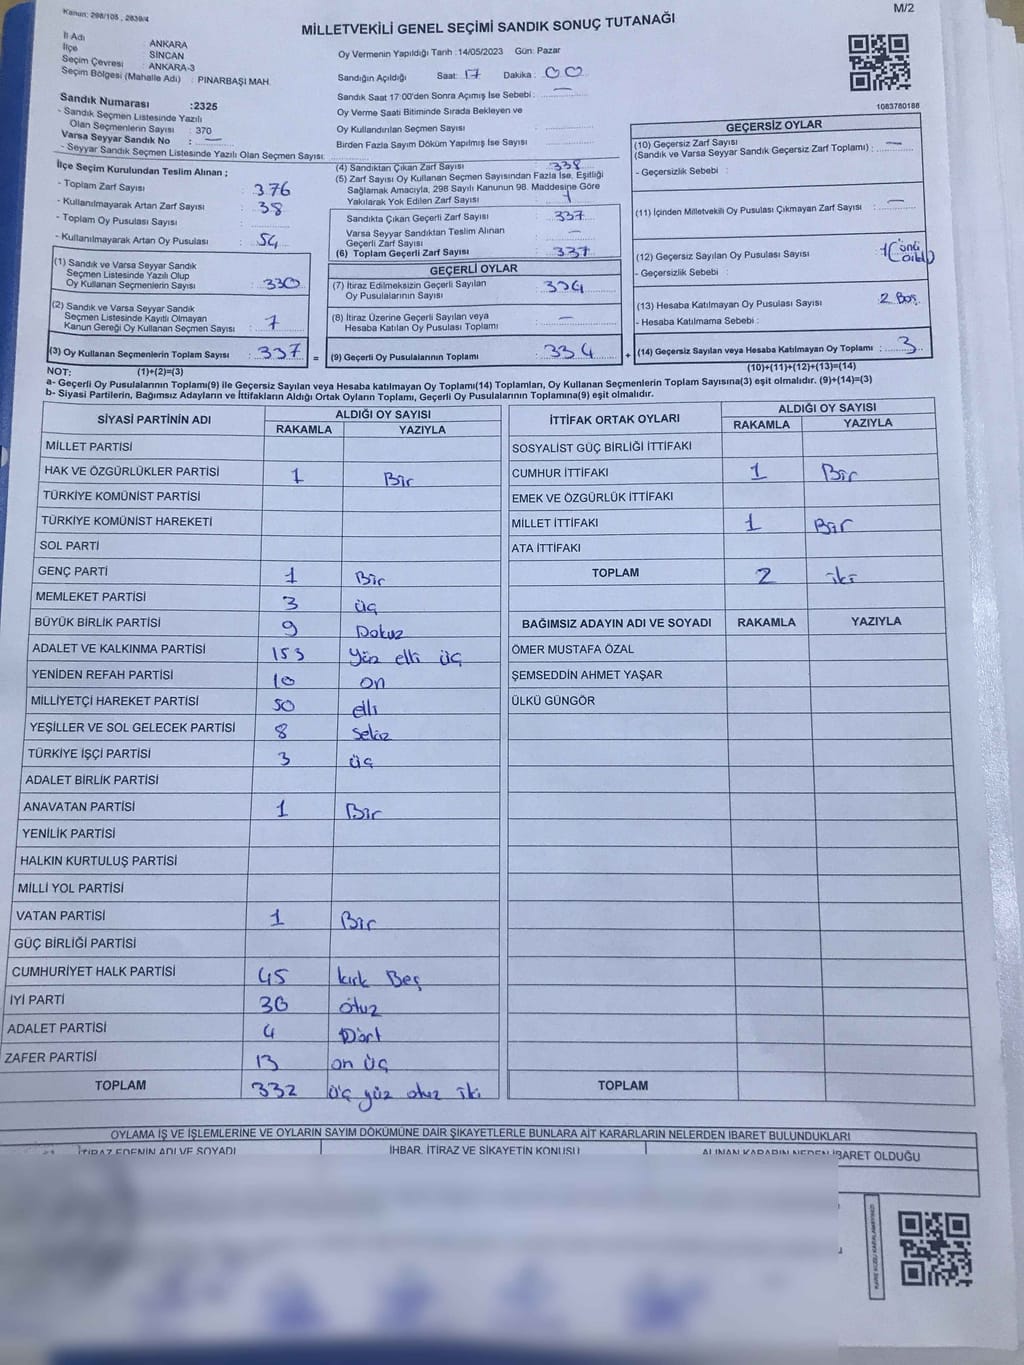 Kanun: 298/105 , 2839/4
M/2
MİLLETVEKİLİ GENEL SEÇİMİ SANDIK SONUÇ TUTANAĞI
İl Adı : ANKARA
İlçe : SİNCAN
Seçim Çevresi : ANKARA-3
Seçim Bölgesi (Mahalle Adı) : PINARBAŞI MAH.
Oy Vermenin Yapıldığı Tarih :14/05/2023 Gün: Pazar
Sandığın Açıldığı Saat: 17 Dakika : 00
Sandık Saat 17:00'den Sonra Açımış İse Sebebi : —
Oy Verme Saati Bitiminde Sırada Bekleyen ve
Oy Kullandırılan Seçmen Sayısı :
Birden Fazla Sayım Döküm Yapılmış İse Sayısı :
1083780186
Sandık Numarası :2325
- Sandık Seçmen Listesinde Yazılı
Olan Seçmenlerin Sayısı : 370
Varsa Seyyar Sandık No : —
- Seyyar Sandık Seçmen Listesinde Yazılı Olan Seçmen Sayısı:
İlçe Seçim Kurulundan Teslim Alınan ;
- Toplam Zarf Sayısı : 376
- Kullanılmayarak Artan Zarf Sayısı : 38
- Toplam Oy Pusulası Sayısı :
- Kullanılmayarak Artan Oy Pusulası : 54
(1) Sandık ve Varsa Seyyar Sandık
Seçmen Listesinde Yazılı Olup
Oy Kullanan Seçmenlerin Sayısı : 330
(2) Sandık ve Varsa Seyyar Sandık
Seçmen Listesinde Kayıtlı Olmayan
Kanun Gereği Oy Kullanan Seçmen Sayısı : 7
(3) Oy Kullanan Seçmenlerin Toplam Sayısı : 337 =
(4) Sandıktan Çıkan Zarf Sayısı : 338
(5) Zarf Sayısı Oy Kullanan Seçmen Sayısından Fazla İse, Eşitliği
Sağlamak Amacıyla, 298 Sayılı Kanunun 98. Maddesine Göre
Yakılarak Yok Edilen Zarf Sayısı : 1
Sandıkta Çıkan Geçerli Zarf Sayısı : 337
Varsa Seyyar Sandıktan Teslim Alınan
Geçerli Zarf Sayısı : —
(6) Toplam Geçerli Zarf Sayısı : 337
GEÇERLİ OYLAR
(7) İtiraz Edilmeksizin Geçerli Sayılan
Oy Pusulalarının Sayısı : 334
(8) İtiraz Üzerine Geçerli Sayılan veya
Hesaba Katılan Oy Pusulası Toplamı : —
(9) Geçerli Oy Pusulalarının Toplamı : 334 +
GEÇERSİZ OYLAR
(10) Geçersiz Zarf Sayısı
(Sandık ve Varsa Seyyar Sandık Geçersiz Zarf Toplamı) : —
- Geçersizlik Sebebi :
(11) İçinden Milletvekili Oy Pusulası Çıkmayan Zarf Sayısı : —
(12) Geçersiz Sayılan Oy Pusulası Sayısı : 1
- Geçersizlik Sebebi :
(13) Hesaba Katılmayan Oy Pusulası Sayısı : 2 Boş
- Hesaba Katılmama Sebebi :
(14) Geçersiz Sayılan veya Hesaba Katılmayan Oy Toplamı : 3
NOT: (1)+(2)=(3) (10)+(11)+(12)+(13)=(14)
a- Geçerli Oy Pusulalarının Toplamı(9) ile Geçersiz Sayılan veya Hesaba katılmayan Oy Toplamı(14) Toplamları, Oy Kullanan Seçmenlerin Toplam Sayısına(3) eşit olmalıdır. (9)+(14)=(3)
b- Siyasi Partilerin, Bağımsız Adayların ve İttifakların Aldığı Ortak Oyların Toplamı, Geçerli Oy Pusulalarının Toplamına(9) eşit olmalıdır.
SİYASİ PARTİNİN ADI ALDIĞI OY SAYISI
RAKAMLA YAZIYLA
MİLLET PARTİSİ
HAK VE ÖZGÜRLÜKLER PARTİSİ 1 Bir
TÜRKİYE KOMÜNİST PARTİSİ
TÜRKİYE KOMÜNİST HAREKETİ
SOL PARTİ
GENÇ PARTİ 1 Bir
MEMLEKET PARTİSİ 3 üç
BÜYÜK BİRLİK PARTİSİ 9 Dokuz
ADALET VE KALKINMA PARTİSİ 153 Yüz elli üç
YENİDEN REFAH PARTİSİ 10 on
MİLLİYETÇİ HAREKET PARTİSİ 50 elli
YEŞİLLER VE SOL GELECEK PARTİSİ 8 sekiz
TÜRKİYE İŞÇİ PARTİSİ 3 üç
ADALET BİRLİK PARTİSİ
ANAVATAN PARTİSİ 1 Bir
YENİLİK PARTİSİ
HALKIN KURTULUŞ PARTİSİ
MİLLİ YOL PARTİSİ
VATAN PARTİSİ 1 Bir
GÜÇ BİRLİĞİ PARTİSİ
CUMHURİYET HALK PARTİSİ 45 kırk Beş
İYİ PARTİ 30 otuz
ADALET PARTİSİ 4 Dört
ZAFER PARTİSİ 13 on üç
TOPLAM 332 üç yüz otuz iki
İTTİFAK ORTAK OYLARI ALDIĞI OY SAYISI
RAKAMLA YAZIYLA
SOSYALİST GÜÇ BİRLİĞİ İTTİFAKI
CUMHUR İTTİFAKI 1 Bir
EMEK VE ÖZGÜRLÜK İTTİFAKI
MİLLET İTTİFAKI 1 Bir
ATA İTTİFAKI
TOPLAM 2 iki
BAĞIMSIZ ADAYIN ADI VE SOYADI RAKAMLA YAZIYLA
ÖMER MUSTAFA ÖZAL
ŞEMSEDDİN AHMET YAŞAR
ÜLKÜ GÜNGÖR
TOPLAM
OYLAMA İŞ VE İŞLEMLERİNE VE OYLARIN SAYIM DÖKÜMÜNE DAİR ŞİKAYETLERLE BUNLARA AİT KARARLARIN NELERDEN İBARET BULUNDUKLARI
İTİRAZ EDENİN ADI VE SOYADI İHBAR, İTİRAZ VE ŞİKAYETİN KONUSU ALINAN KARARIN NEDEN İBARET OLDUĞU